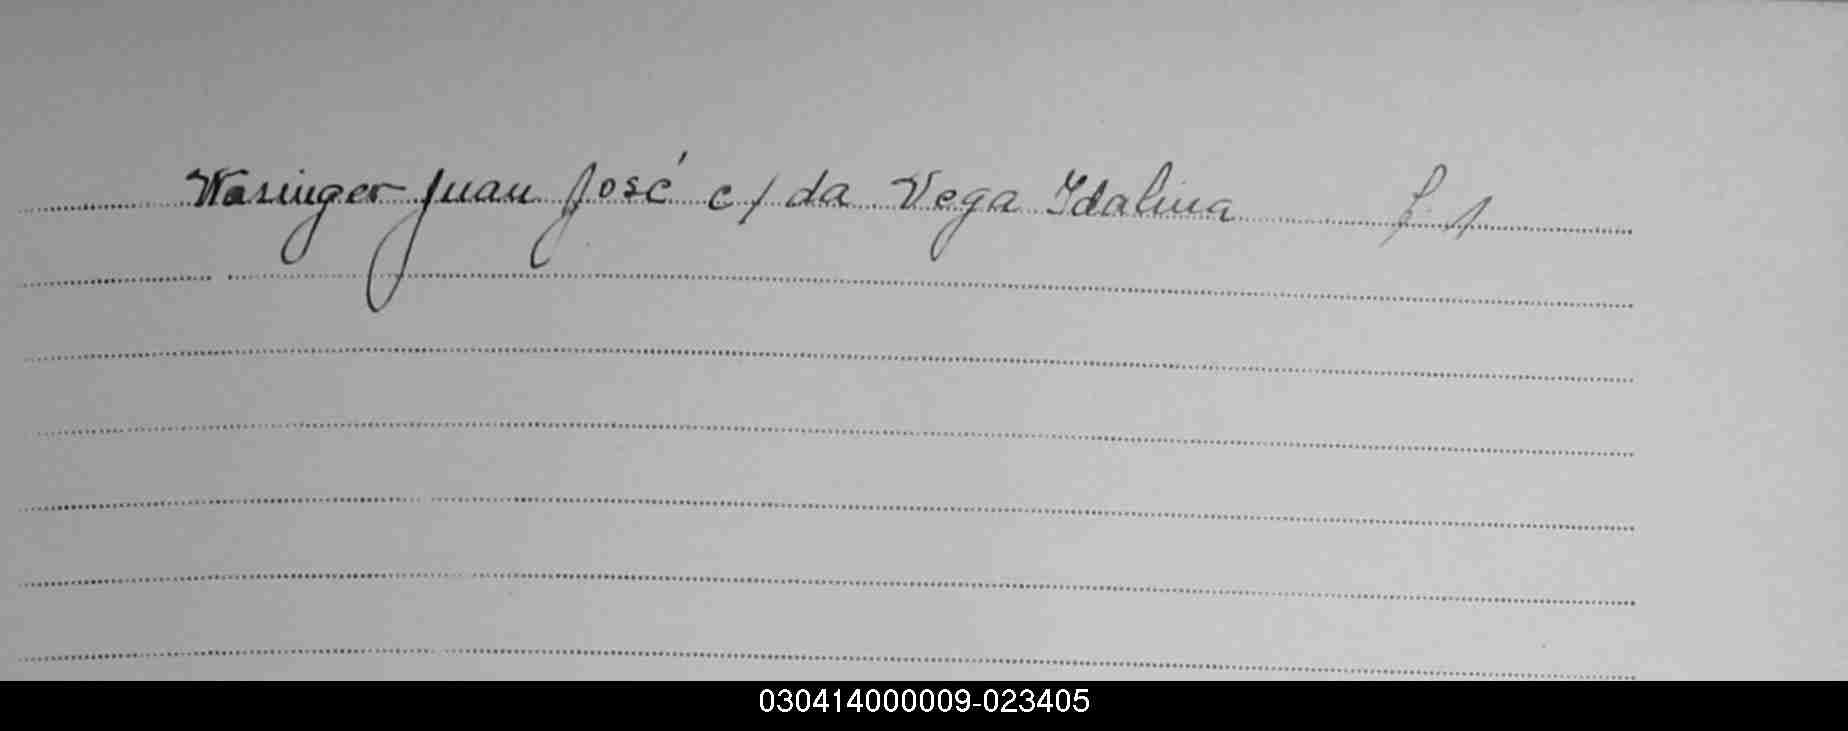 Wasinger Juan José c/ da Vega Idalina f 1
030414000009-023405